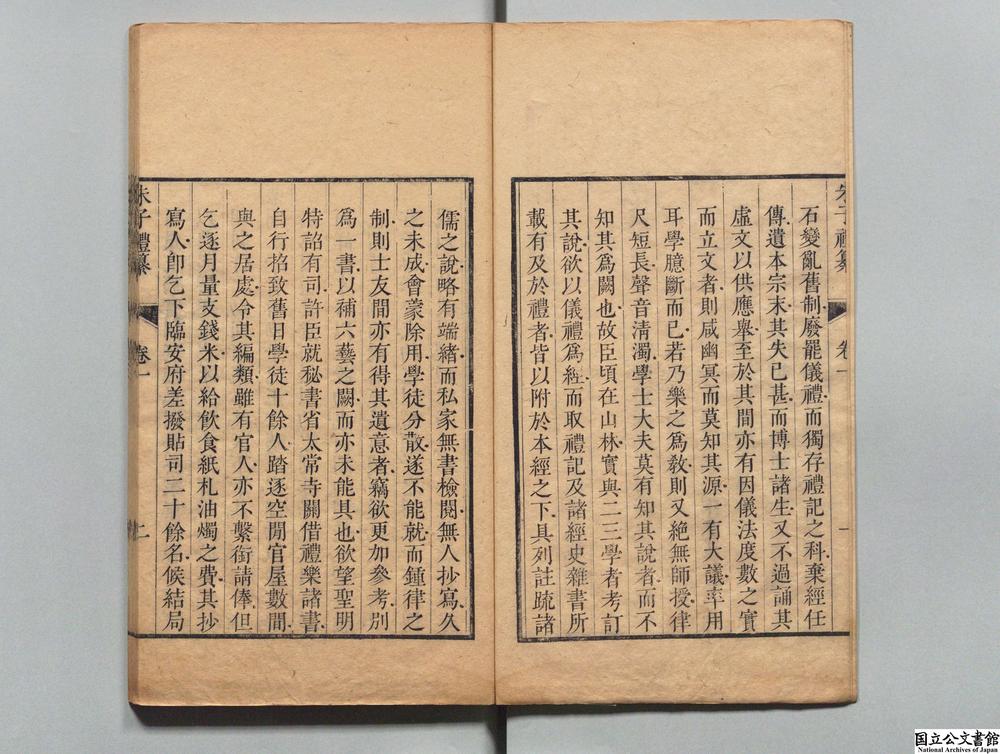 朱子禮纂 卷一 一
石變亂舊制廢罷儀禮而獨存禮記之科棄經任
傳遺本宗末其失已甚而博士諸生又不過誦其
虛文以供應舉至於其間亦有因儀法度數之實
而立文者則咸幽冥而莫知其源一有大議率用
耳學臆斷而已若乃樂之爲敎則又絕無師授律
尺短長聲音淸濁學士大夫莫有知其說者而不
知其爲闕也故臣頃在山林實與二三學者考訂
其說欲以儀禮爲經而取禮記及諸經史雜書所
載有及於禮者皆以附於本經之下具列註疏諸
儒之說略有端緒而私家無書檢閱無人抄寫久
之未成會蒙除用學徒分散遂不能就而鍾律之
制則士友間亦有得其遺意者竊欲更加參考別
爲一書以補六藝之闕而亦未能具也欲望聖明
特詔有司許臣就秘書省太常寺關借禮樂諸書
自行招致舊日學徒十餘人踏逐空閒官屋數間
與之居處令其編類雖有官人亦不繫銜請俸但
乞逐月量支錢米以給飮食紙札油燭之費其抄
寫人卽乞下臨安府差撥貼司二十餘名候結局
朱子禮纂 卷一 二
国立公文書館
National Archives of Japan